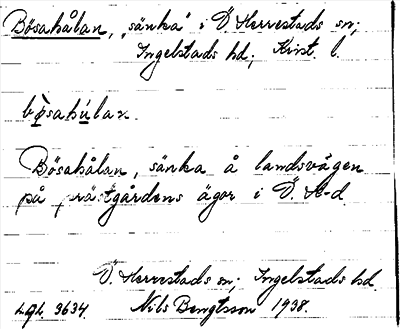 Bösahålan, „sänka" i Ö Herrestads sn;
Ingelstads hd; Krist. l.
bøsahúlan.
Bösahålan, sänka å landsvägen
på prästgårdens ägor i Ö. H-d.
Ö. Herrestads sn; Ingelstads hd.
LGL 3634. Nils Bengtsson 1938.